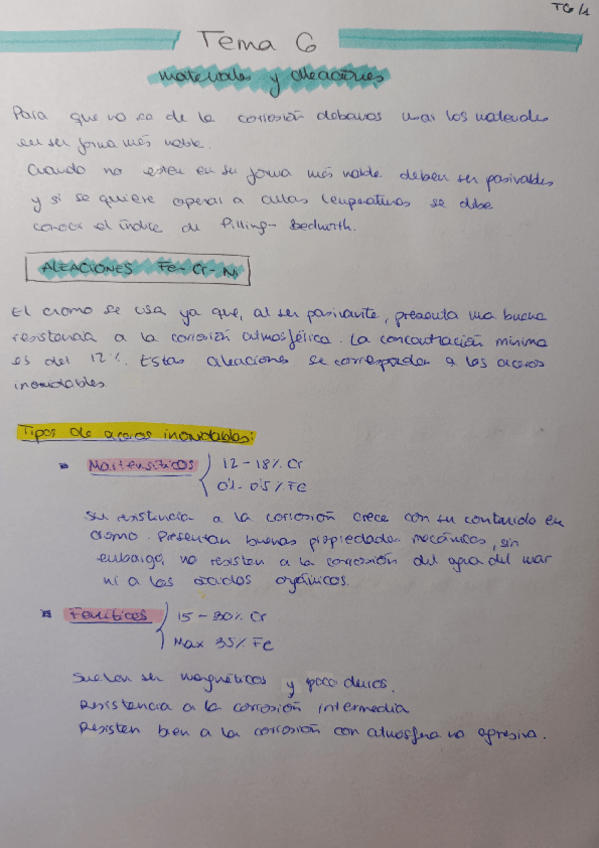 T6/1
Tema 6
materiales y aleaciones
Para que no se de la corrosión debemos usar los materiales
en su forma más noble.
Cuando no esten en su forma más noble deben ser pasivables
y si se quiere operar a altas temperaturas se debe
conocer el índice de Pilling-Bedworth.
ALEACIONES Fe-Cr-Ni
El cromo se usa ya que, al ser pasivante, presenta una buena
resistencia a la corrosión atmosférica. La concentración mínima
es del 12%. Estas aleaciones se corresponden a los aceros
inoxidables.
Tipos de aceros inoxidables:
Martensíticos 12-18% Cr
0'1-0'5% Fe
Su resistencia a la corrosión crece con su contenido en
cromo. Presentan buenas propiedades mecánicas, sin
embargo, no resisten a la corrosión del agua del mar
ni a los ácidos orgánicos.
Ferríticos 15-30% Cr
Max 35% Fe
Suelen ser magnéticos y poco duros.
Resistencia a la corrosión intermedia
Resisten bien a la corrosión con atmosfera no agresiva.